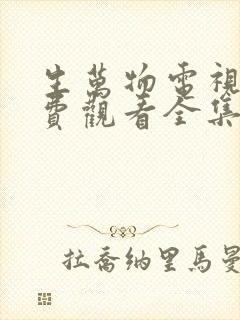 生萬物電視
費觀看全集
拉喬納里馬曼